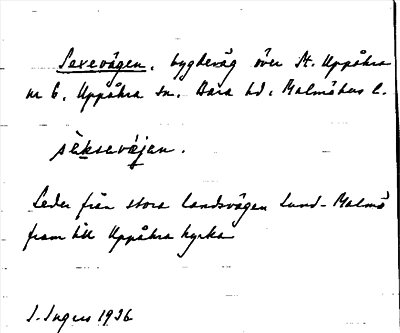 Sexevägen, bygdeväg över St. Uppåkra
nr 6, Uppåkra sn. Bara hd, Malmöhus l.
sèksevä́jen.
Leder från stora landsvägen Lund-Malmö
fram till Uppåkra kyrka
I. Ingers 1936